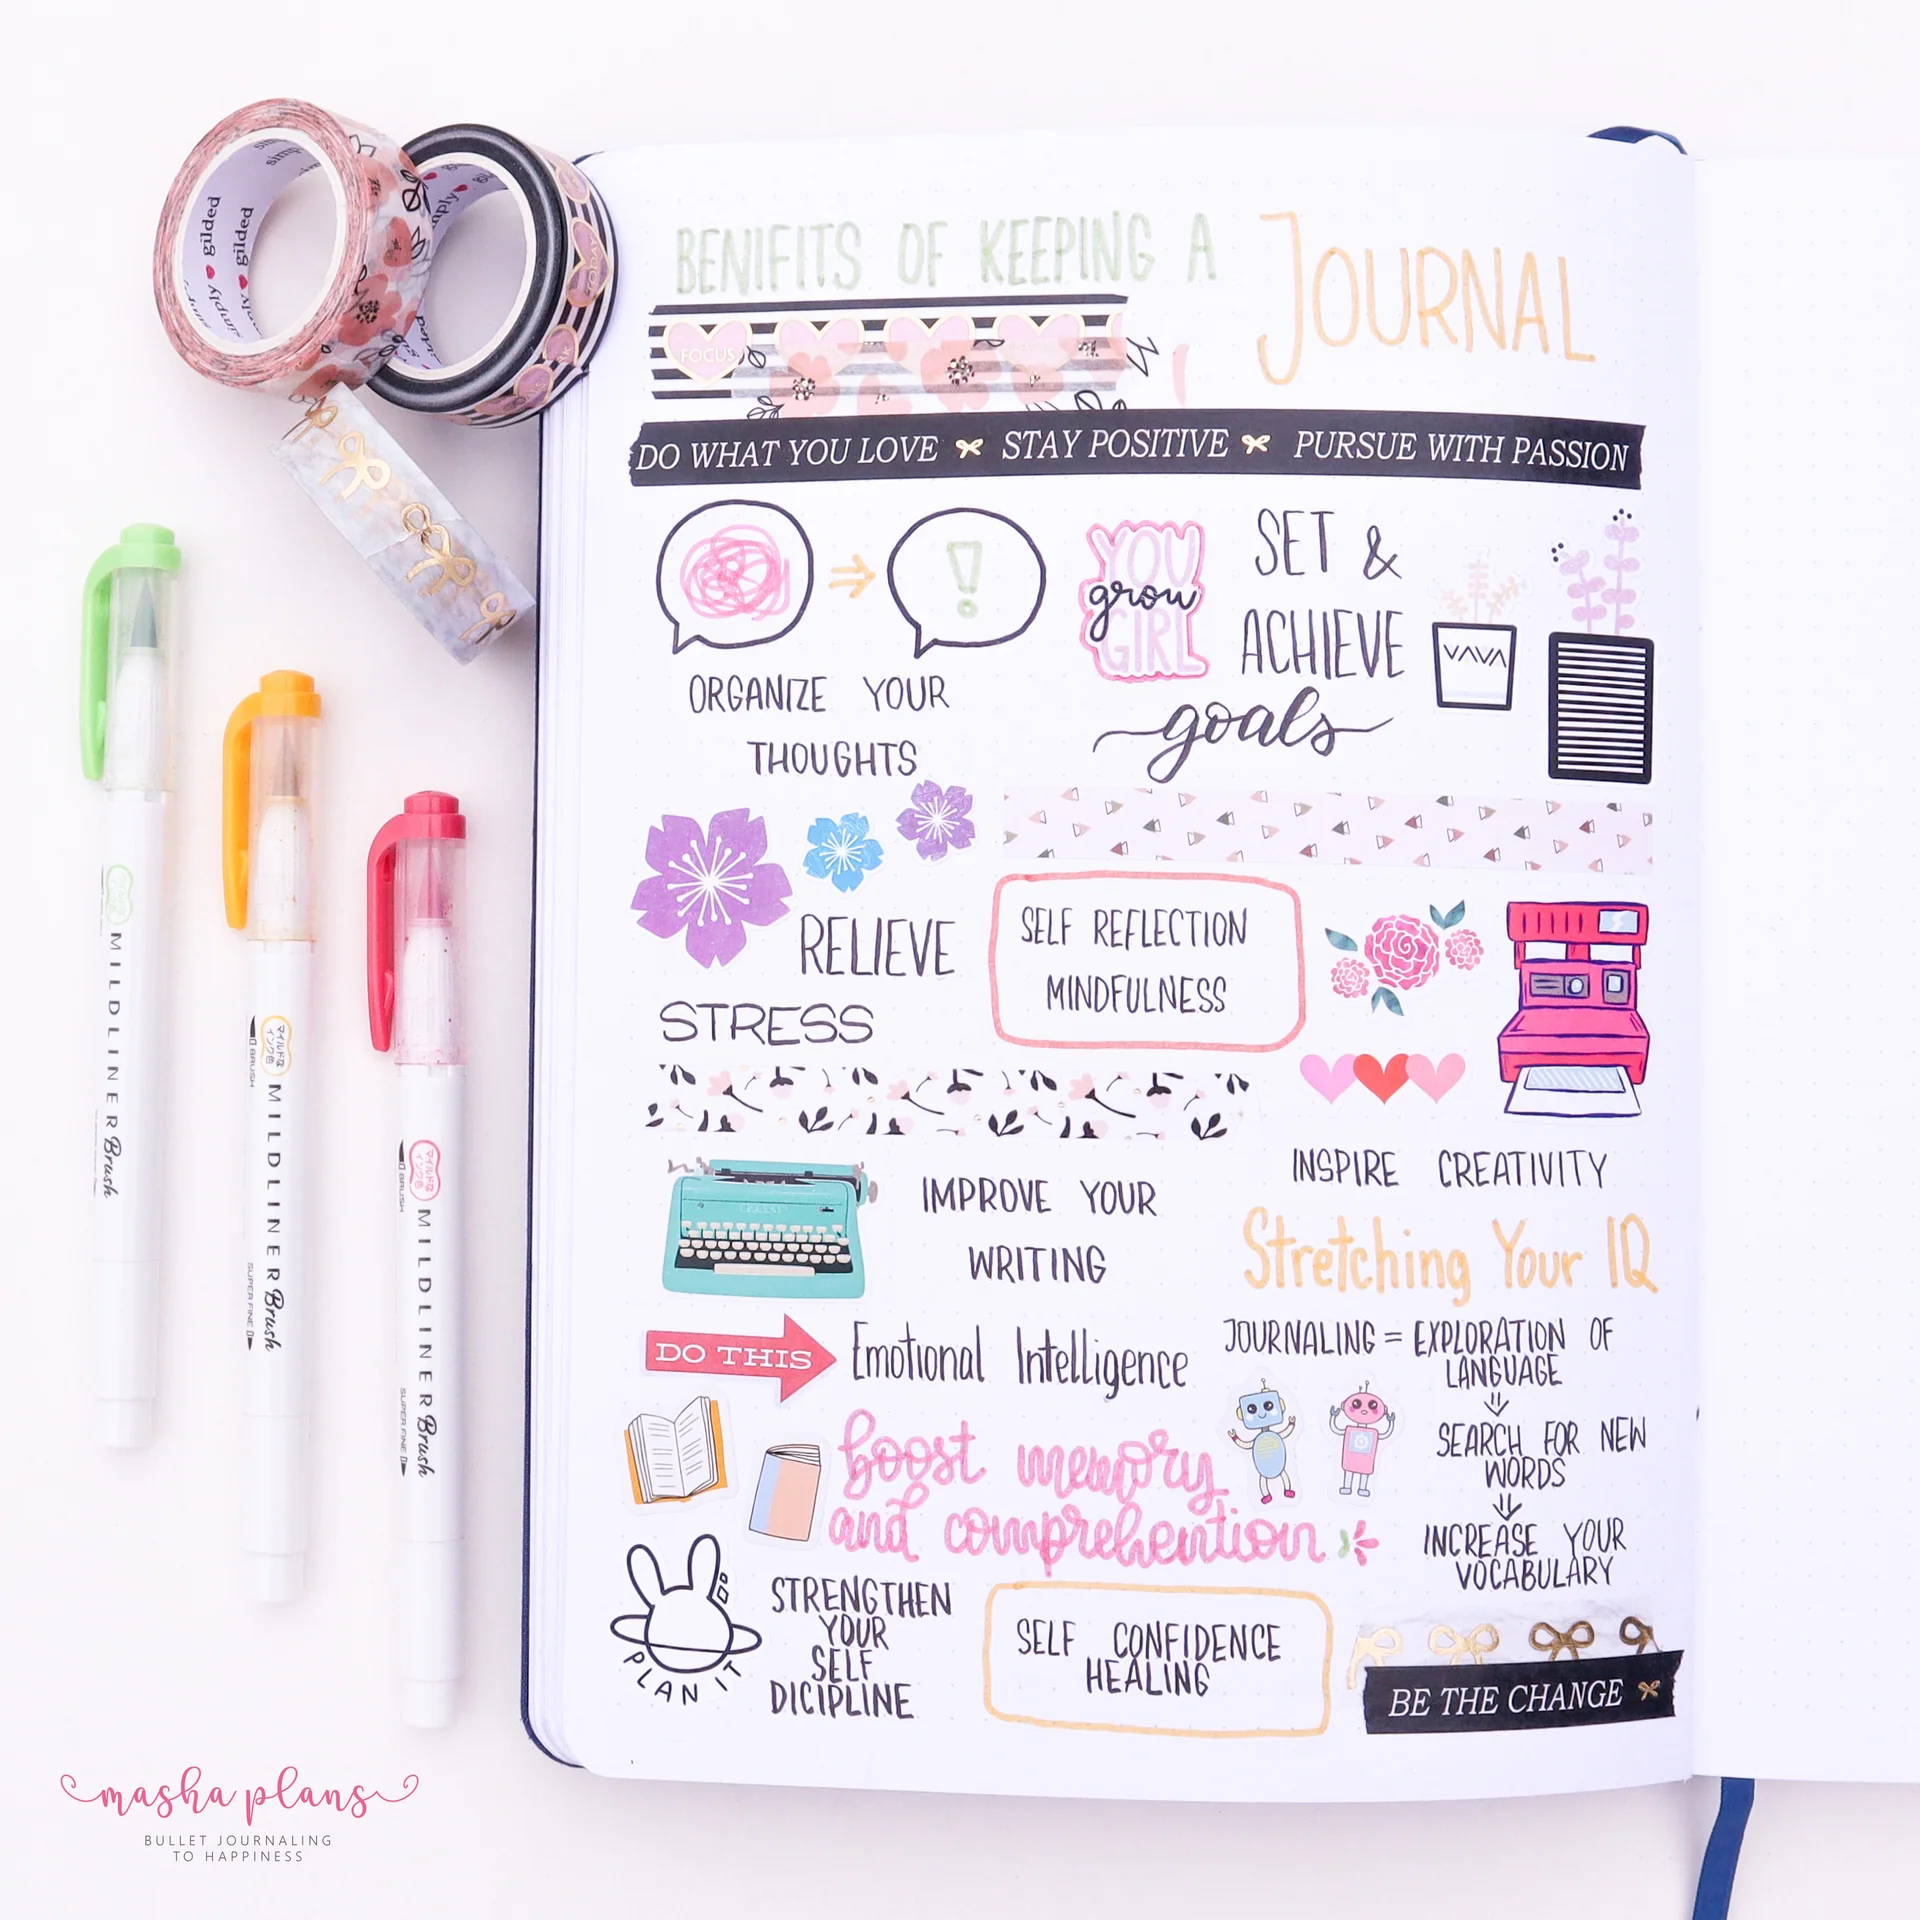 BENIFITS OF KEEPING A JOURNAL
FOCUS
DO WHAT YOU LOVE STAY POSITIVE PURSUE WITH PASSION
!
ORGANIZE YOUR
THOUGHTS
YOU
grow
GIRL
SET &
ACHIEVE
goals
RELIEVE
STRESS
SELF REFLECTION
MINDFULNESS
INSPIRE CREATIVITY
IMPROVE YOUR
WRITING
Stretching Your IQ
JOURNALING = EXPLORATION OF
LANGUAGE
SEARCH FOR NEW
WORDS
INCREASE YOUR
VOCABULARY
DO THIS
Emotional Intelligence
boost memory
and comprehention
PLAN IT
STRENGTHEN
YOUR
SELF
DICIPLINE
SELF CONFIDENCE
HEALING
BE THE CHANGE
simply gilded
simply gilded
MILDLINER Brush
マイルドな
インク色
BRUSH
MILDLINER Brush
SUPER FINE
マイルドな
インク色
BRUSH
MILDLINER Brush
SUPER FINE
masha plans
BULLET JOURNALING
TO HAPPINESS